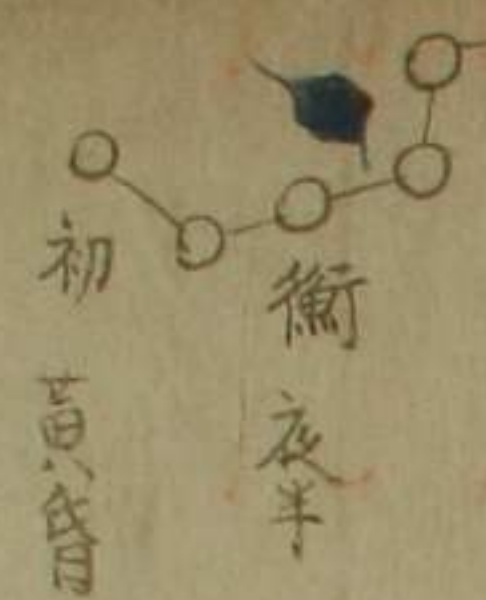 衡
夜半
初
黃昏